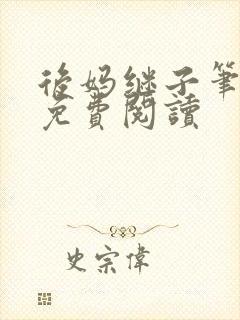 後妈继子筆
免費閱讀
史宗偉